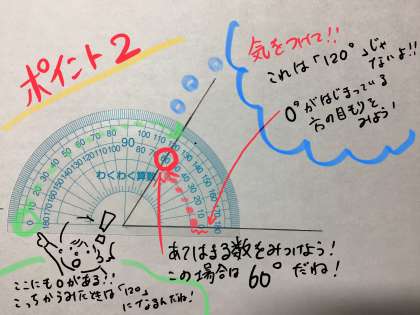 ポイント2
気をつけて!!
これは「120°」じゃ
ないよ!!
0°がはじまっている
方の目もりを
みよう!
わくわく算数
90
90
あてはまる数をみつけよう!
この場合は60°だね!
ここにも0がある!!
こっちからみたときは「120」
になるんだね!